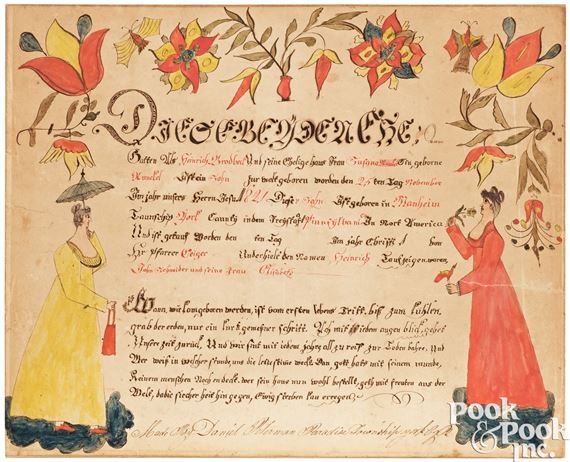 DIESE BEYDEN EHE,
Hatten Als Heinrich Und seine Ehelige haus Frau Susana Ein geborne
Ist ein Sohn zur welt geboren worden den 25 ten Tag November
Im jahr unsers Herrn Jesu 1821 Dieser Sohn Ist geboren in Manheim
Taunschip York Caunty in dem Pinnsylvani In Nort America
Und ist getauft Worden den ten Tag Im jahr Christi von
Hr Pfarrer Geiger Underhielt den Namen Heinrich Taufzeigen waren
John Schneider und seine Frau Elisabeth
Wann wir kom geboren werden, ist vom ersten lebens Tritt, biß zum kühlen
grab der erden, nur ein kurz gemeßner schritt. Ach mit jedem augen blick, gehet
Unser zeit zurück, Und wir sint mit jedem jahre, all zu reif zur Toden bahre. Und
Wer weis in welcher stunde, uns die letzte stime weckt Dan gott hats mit seinem munde,
Keinem menschen Noch endeckt. wer sein haus nun wohl bestelt, geth mit freuden aus der
Welt, da die hin gegen, Ewig sterben kan erregen.
Made By Daniel Peterman Paradise Township york
POOK
& POOK
Inc.